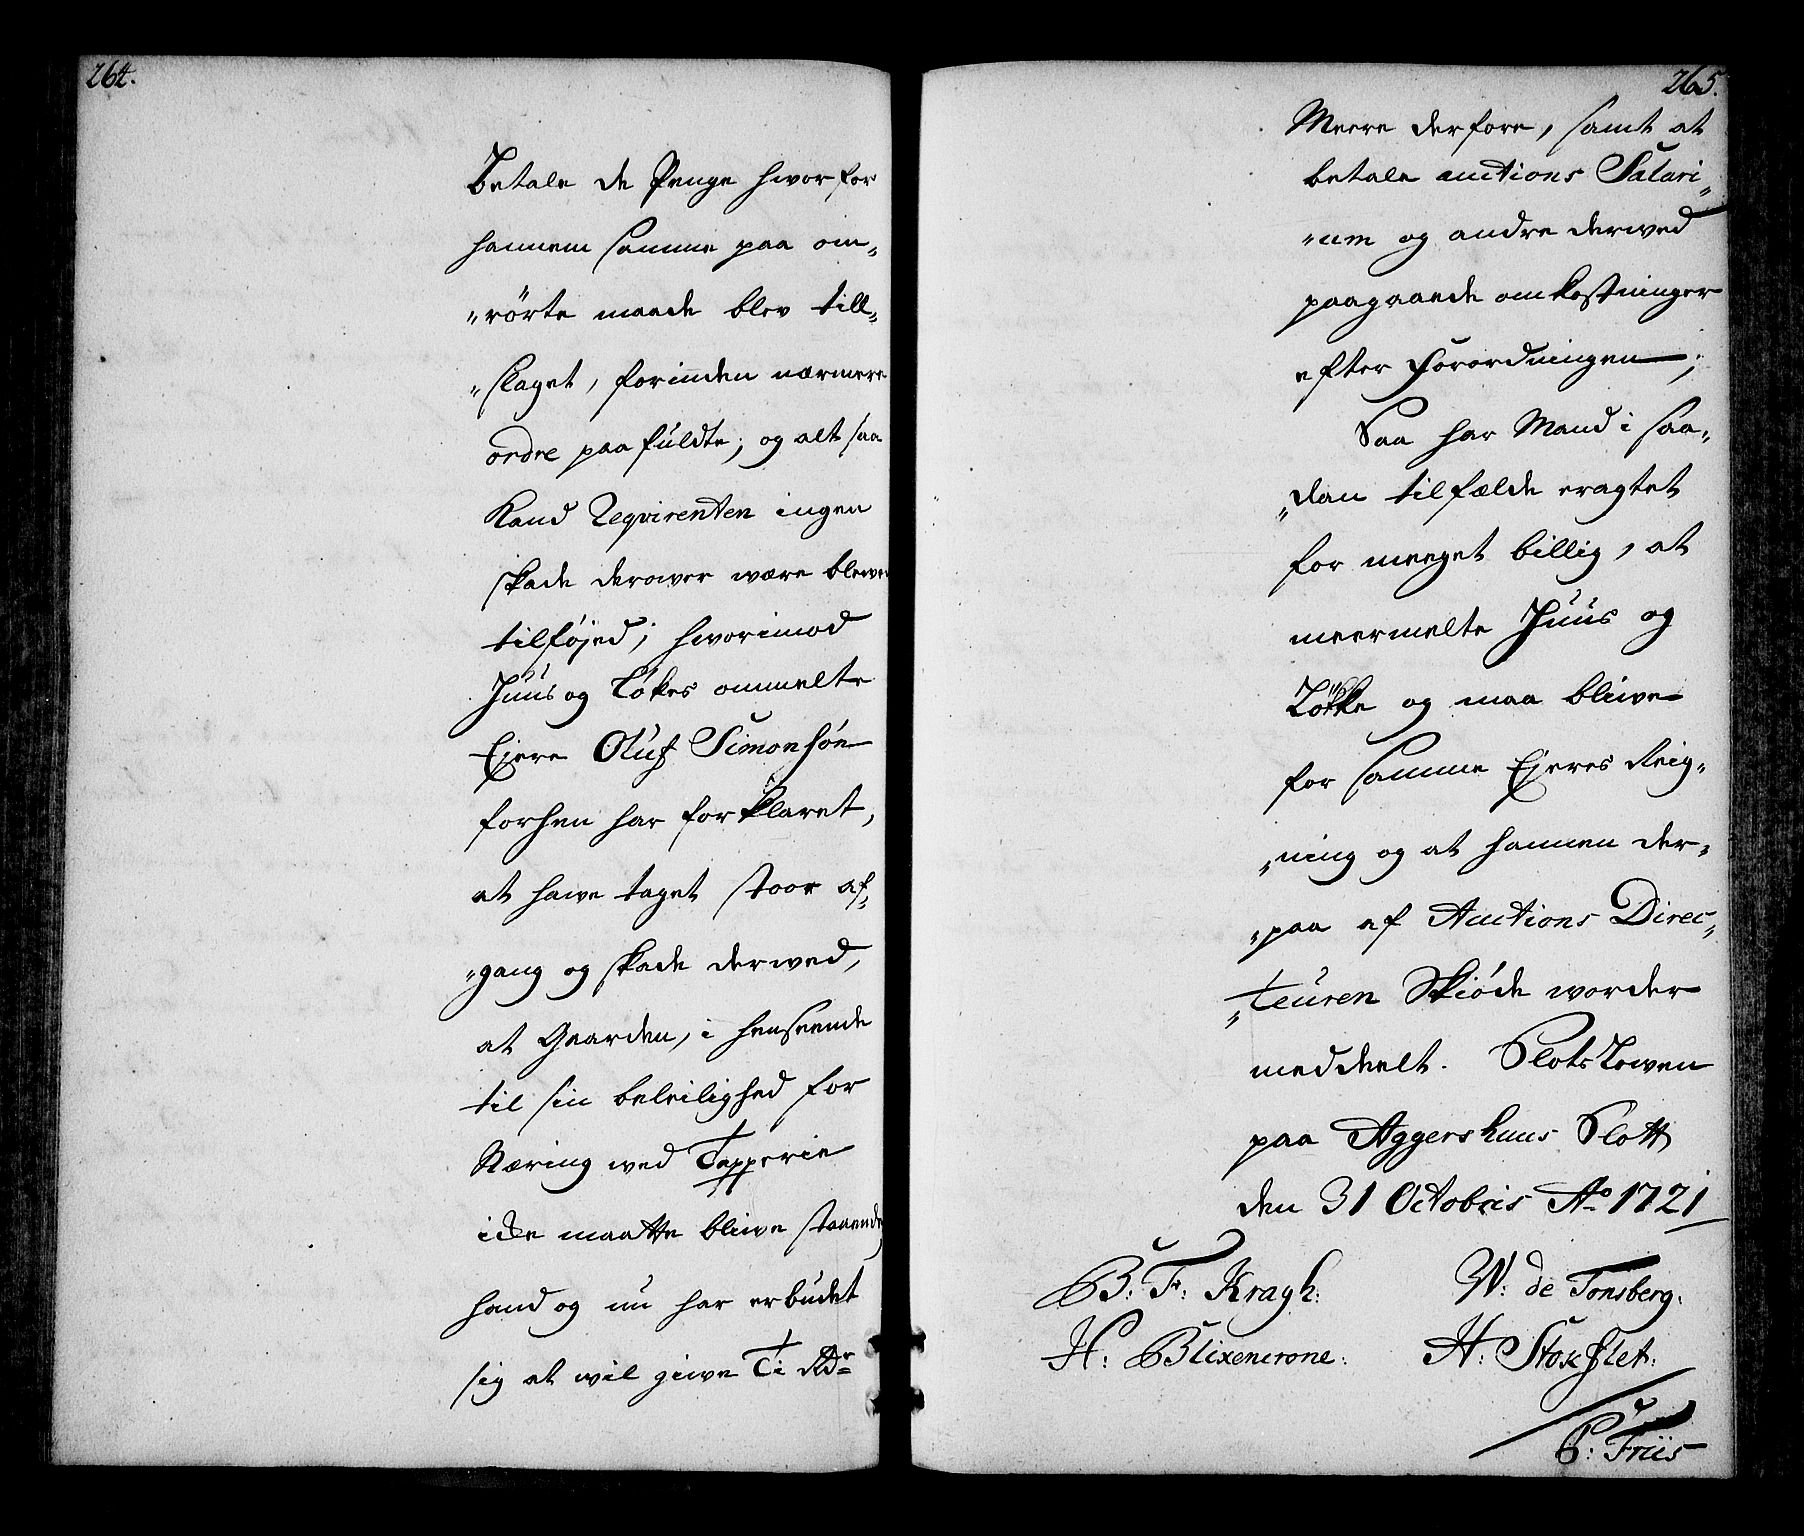 264.
Betale de Penge hvorfor
hannem samme paa om„
„rörte maade blev till„
„slaget, forinden nærmere
ordre paafuldte; og alt saa
Kand Reqvirenten ingen
skade derower være blewen
tilføjed; hvorimod
Juus og Løkes ommelte
Ejere Oluf Simonsøn
forhen har forklaret,
at hawe taget stoor af„
„gang og skade derwed,
at Gaarden, i henseende
til sin beleilighed for
Næring wed Tapperie
icke maatte bliwe staaende,
hand og nu har erbudet
sig at wil giwe Ti Rdr
265.
Meere derfore, samt at
betale auctions Salari„
„um og andre derwed
paagaaende omkostninger
efter Forordningen;
Saa har Mand i saa„
„dan tilfælde eragtet
for meeget billig, at
meermelte Juus og
Løkke og maa bliwe
for samme Ejeres Reig„
„ning og at hannem der„
„paa af Auctions Direc„
„teuren Skiøde worder
meddeelt. SlotsLowen
paa Aggershuus Slott
den 31 Octobris Ao 1721
B: F: Kragh: W: de Tonsberg:
H: Blixencrone: H: Stockflet:
/ P: Friis